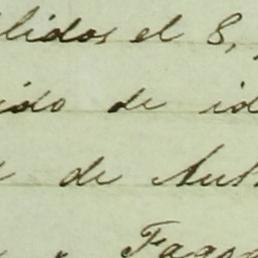 lidos el S,
ido de id
de Aus
Fago